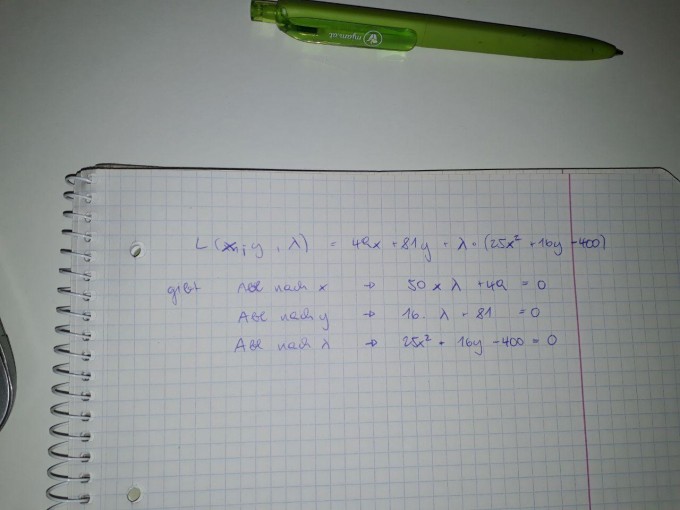 nyam.at
L (x, y, λ) = 49x + 81y + λ · (25x² + 16y - 400)
gibt Abl nach x → 50 x λ + 49 = 0
Abl nach y → 16 · λ + 81 = 0
Abl nach λ → 25x² + 16y - 400 = 0